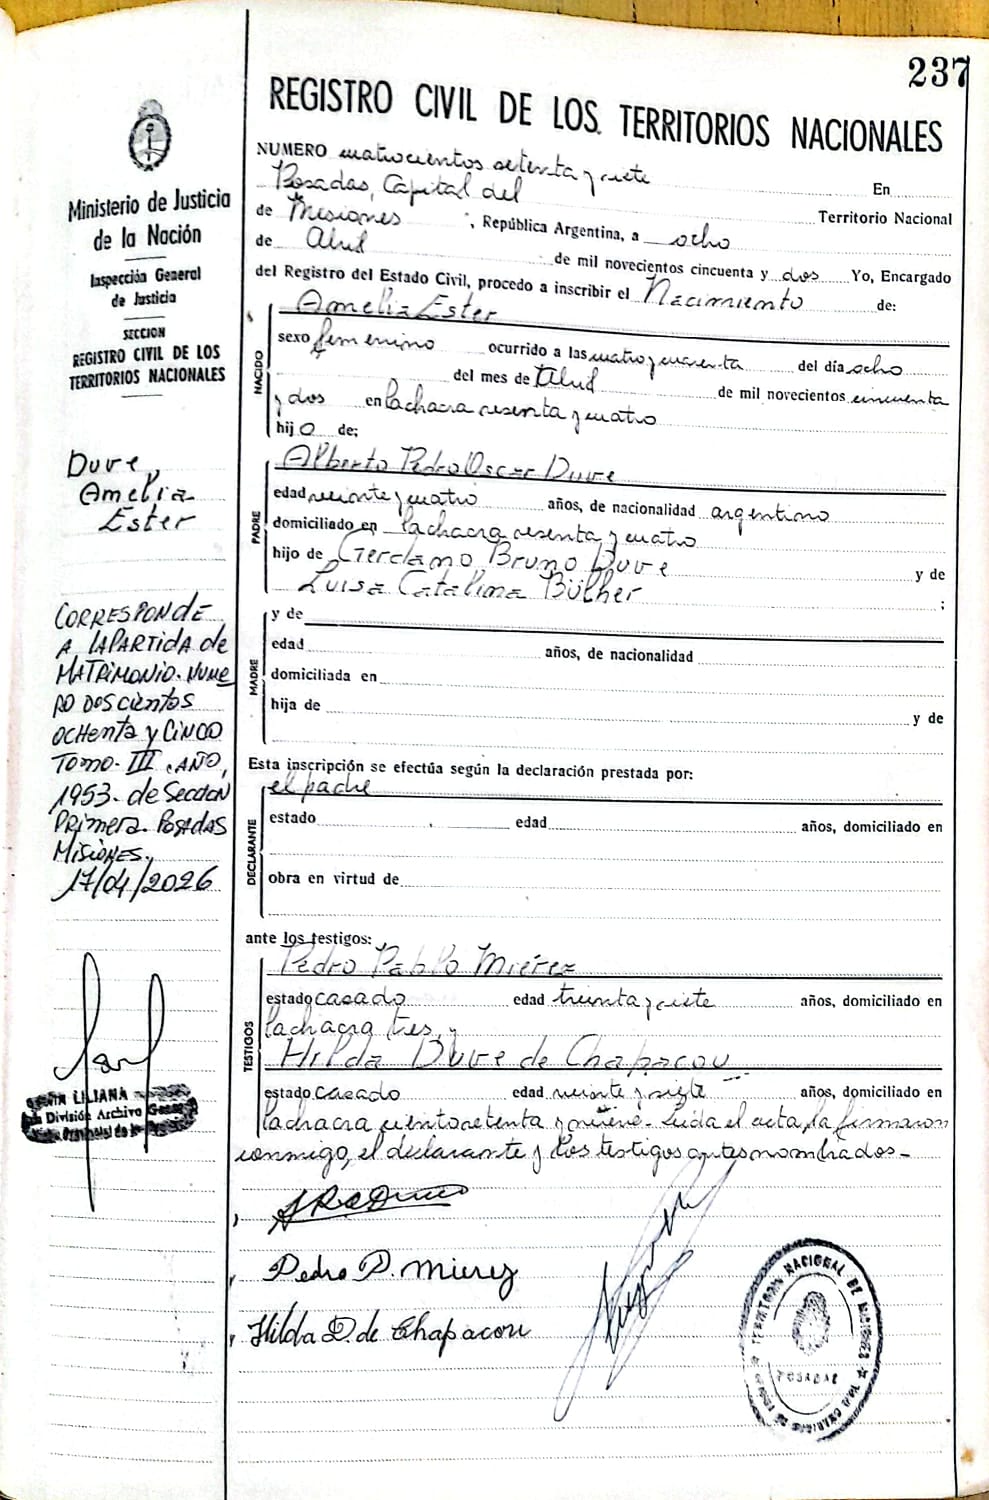 237
REGISTRO CIVIL DE LOS TERRITORIOS NACIONALES
Ministerio de Justicia
de la Nación
Inspección General
de Justicia
SECCION
REGISTRO CIVIL DE LOS
TERRITORIOS NACIONALES
Duve,
Amelia
Ester
CORRESPONDE
A LA PARTIDA de
MATRIMONIO. NUME
RO DOS cientos
OCHENTA y CINCO
Tomo. III. AÑO,
1953. de Seccion
Primera. POSADAS
Misiones.
17/04/2026
LILIANA
División Archivo
NUMERO cuatrocientos setenta y siete En
Posadas, Capital del Territorio Nacional
de Misiones, República Argentina, a ocho
de Abril de mil novecientos cincuenta y dos Yo, Encargado
del Registro del Estado Civil, procedo a inscribir el Nacimiento de:
NACIDO
Amelia Ester
sexo femenino ocurrido a las cuatro y cuarenta del día ocho
del mes de Abril de mil novecientos cincuenta
y dos en la chacra sesenta y cuatro
hij a de;
PADRE
Alberto Pedro Oscar Duve
edad veinte y cuatro años, de nacionalidad argentino
domiciliado en la chacra sesenta y cuatro
hijo de Gerdano Bruno Duve y de
Luisa Catalina Bülher ;
MADRE
y de
edad años, de nacionalidad
domiciliada en
hija de y de
Esta inscripción se efectúa según la declaración prestada por:
DECLARANTE
el padre
estado edad años, domiciliado en
obra en virtud de
ante los testigos:
TESTIGOS
Pedro Pablo Mierez
estado casado edad treinta y siete años, domiciliado en
la chacra tres, y
Hilda Duve de Chapacou
estado casado edad veinte y siete años, domiciliado en
la chacra ciento setenta y nueve. Leida el acta, la firmaron
conmigo, el declarante y los testigos antes nombrados.-
Pedro P. Mierez
Hilda D. de Chapacou
TERRITORIO NACIONAL DE MISIONES
POSADAS